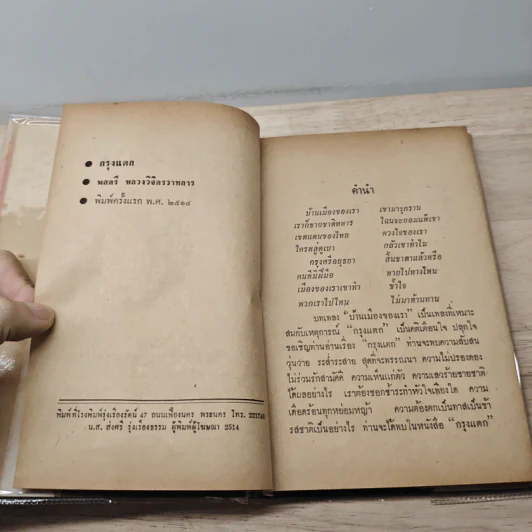 กรุงแตก
พลตรี หลวงวิจิตรวาทการ
พิมพ์ครั้งแรก พ.ศ. ๒๕๑๔
พิมพ์ที่โรงพิมพ์รุ่งเรืองรัตน์ 47 ถนนเฟื่องนคร พระนคร โทร.
น.ส. ส่งศรี รุ่งเรืองธรรม ผู้พิมพ์ผู้โฆษณา 2514
คำนำ
บ้านเมืองของเรา เขามารุกราน
เราก็ชายชาติทหาร ไฉนจะยอมแพ้เขา
เขตแดนของไทย ดวงใจของเรา
ใครหลู่ดูเบา กลัวเขาทำไม
กรุงศรีอยุธยา สิ้นชาตาแล้วหรือ
คนดีมีฝีมือ หายไปทางไหน
เมืองของเราเขาทำ ช้ำใจ
พวกเราไปไหน ไม่มาต้านทาน
บทเพลง "บ้านเมืองของเรา" เป็นเพลงที่เหมาะ
สมกับเหตุการณ์ "กรุงแตก" เป็นคติเตือนใจ ปลุกใจ
ขอเชิญท่านอ่านเรื่อง "กรุงแตก" ท่านจะพบความสับสน
วุ่นวาย ระส่ำระสาย สุดที่จะพรรณนา ความไม่ปรองดอง
ไม่ร่วมรักสามัคคี ความเห็นแก่ตัว ความเลวร้ายขายชาติ
ได้ผลอย่างไร เราต้องชอกช้ำระกำหัวใจเพียงใด ความ
เดือดร้อนทุกหย่อมหญ้า ความต้องตกเป็นทาสเป็นข้า
รสชาติเป็นอย่างไร ท่านจะได้พบในหนังสือ "กรุงแตก"